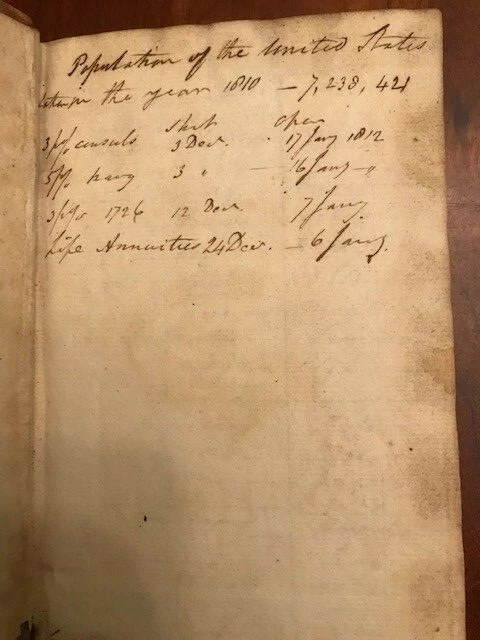 Population of the United States
taken in the year 1810 — 7,238,421
Shut Open
3 p/c consuls 3 Decr. 17 Jany 1812
5 p/c Navy 3 " — 16 Jany — "
3 p/c 1726 12 Decr. 7 Jany
Life Annuities 24 Decr. — 6 Jany.